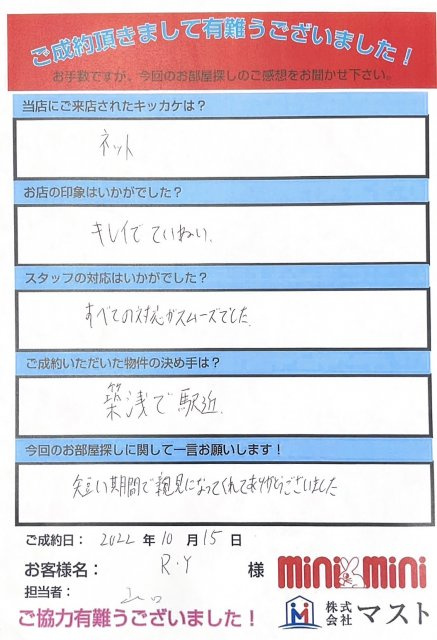 ご成約頂きまして有難うございました！
お手数ですが、今回のお部屋探しのご感想をお聞かせ下さい。
当店にご来店されたキッカケは？
ネット
お店の印象はいかがでした？
キレイで ていねい.
スタッフの対応はいかがでした？
すべての対応がスムーズでした.
ご成約いただいた物件の決め手は？
築浅で駅近.
今回のお部屋探しに関して一言お願いします！
短い期間で親見になってくれてありがとうございました
ご成約日： 2022 年 10 月 15 日
お客様名： R.Y 様
担当者：
ご協力有難うございました！
mini mini
株式会社 マスト